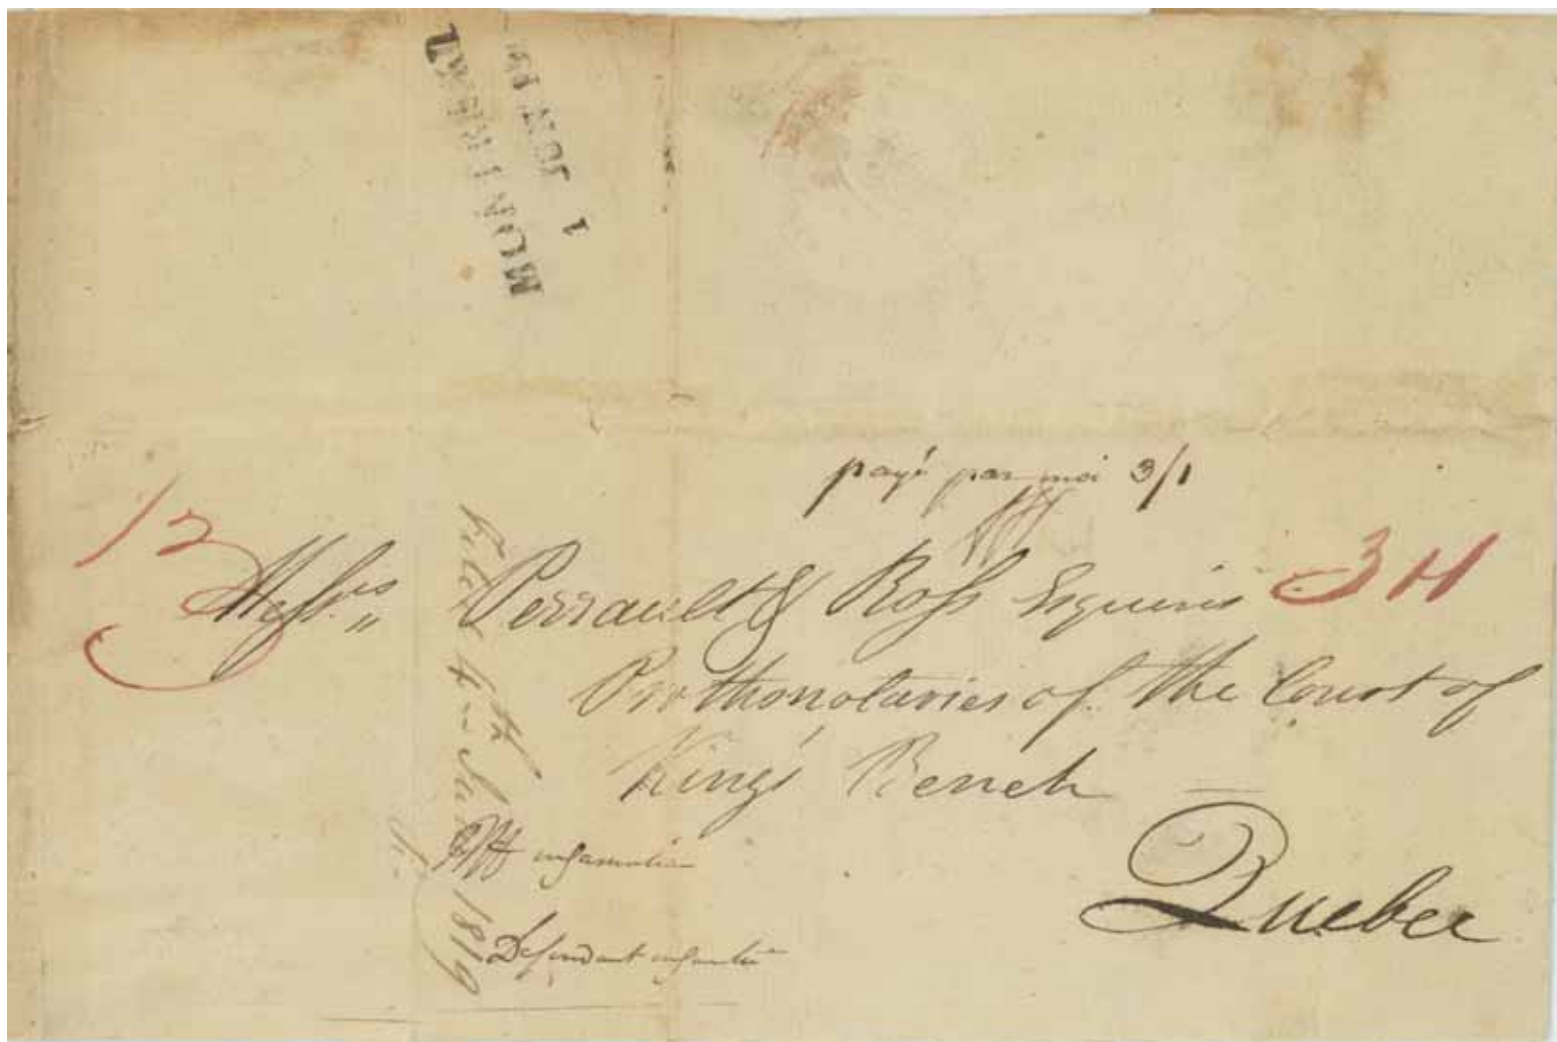 MONTREAL
JUN
1
payé par moi 3/1
Messrs Perrault & Ross Esquires 3H
Prothonotaries of the Court of
King's Bench
Quebec
Filed 4th June 1819
Defendant